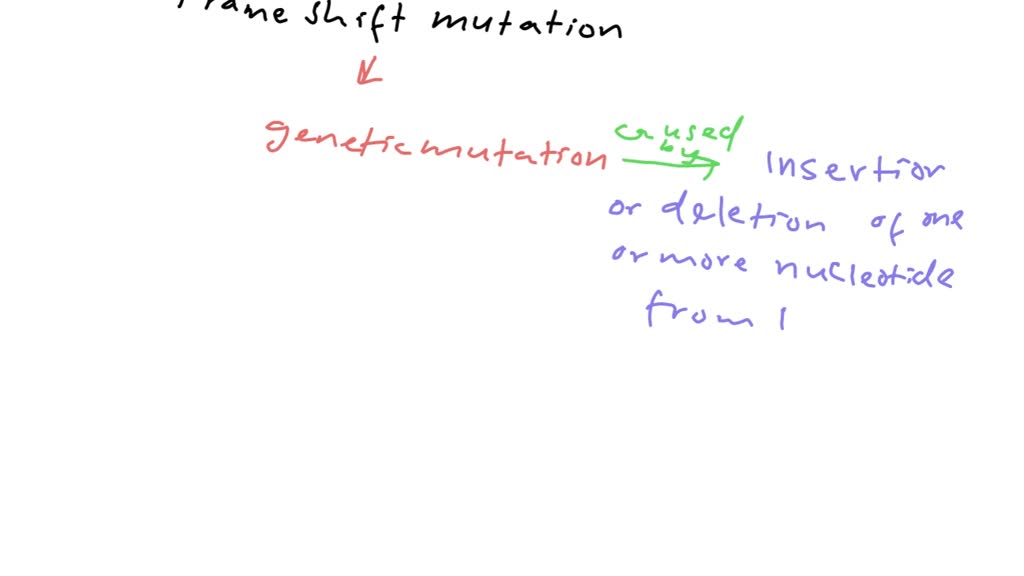 Frame shift mutation
genetic mutation
caused
by
Insertion
or deletion of one
or more nucleotide
from